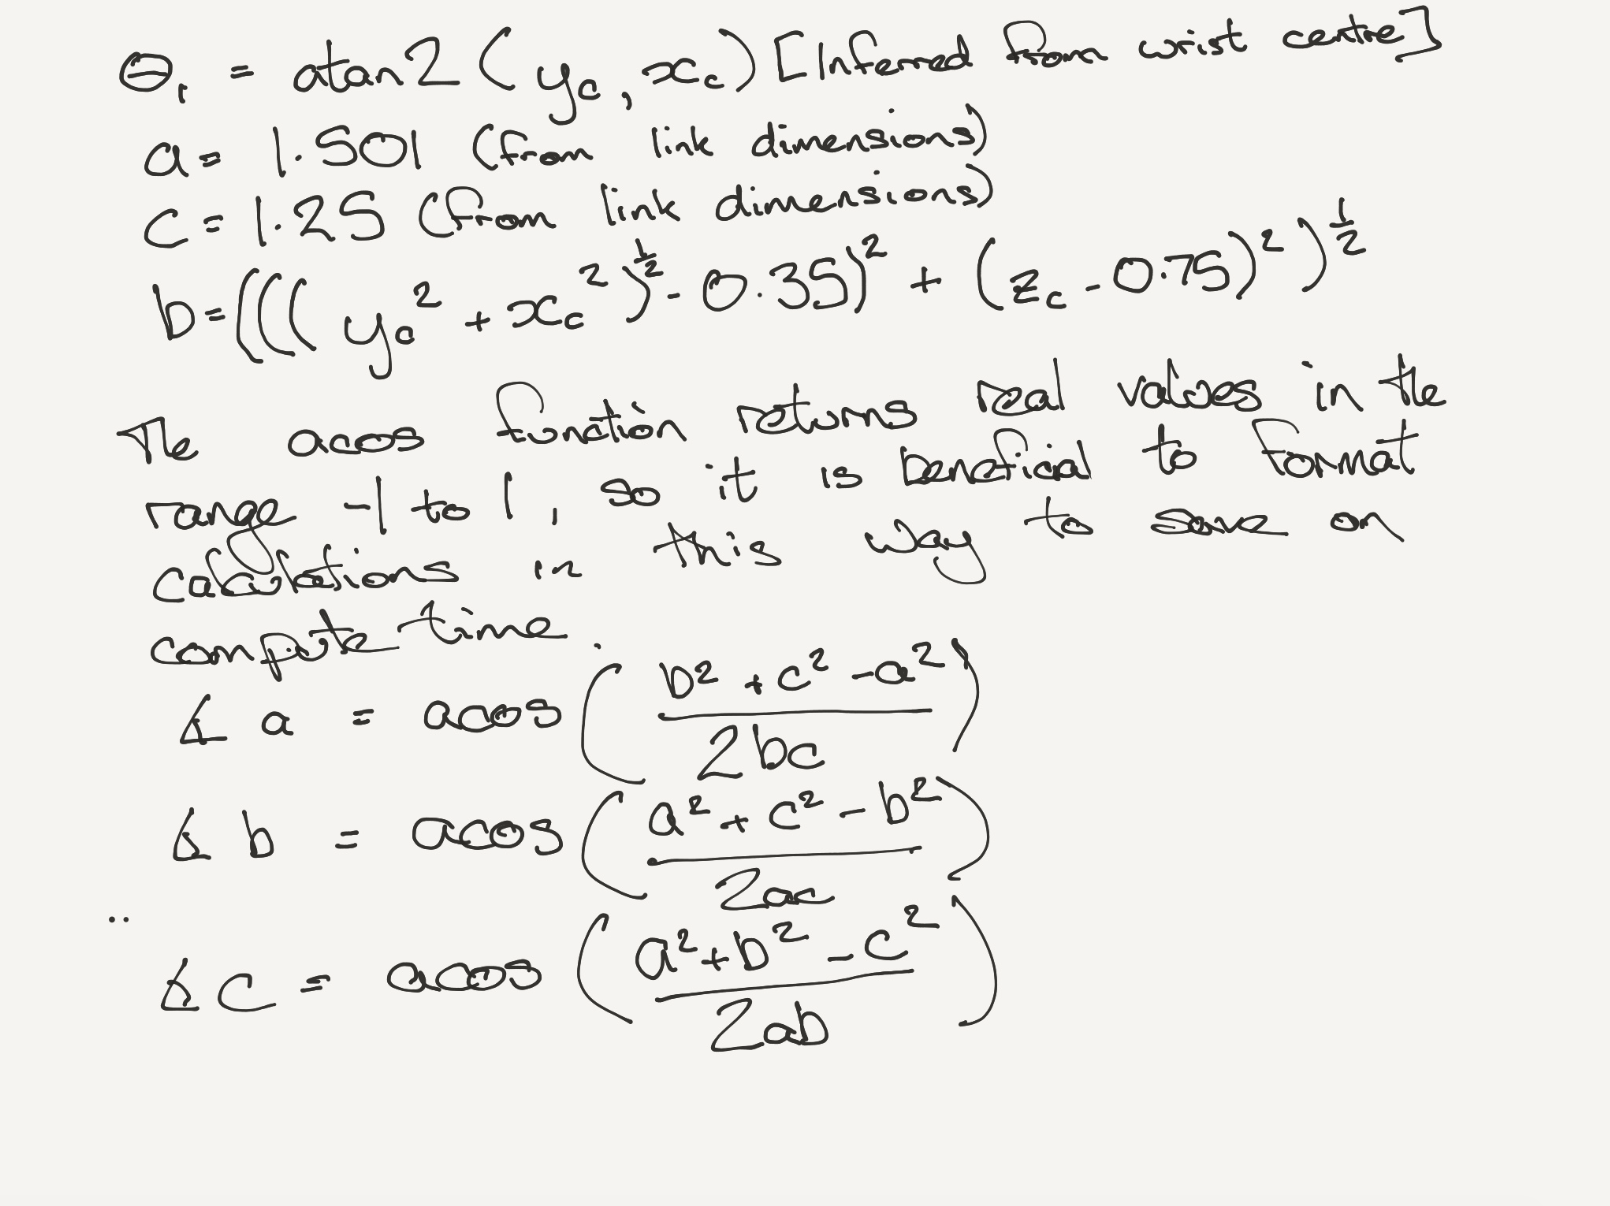 θ₁ = atan2(y_c, x_c) [Inferred from wrist centre]
a = 1.501 (from link dimensions)
c = 1.25 (from link dimensions)
b = (((y_c² + x_c²)^½ - 0.35)² + (z_c - 0.75)²)^½
The acos function returns real values in the
range -1 to 1, so it is beneficial to format
calculations in this way to save on
compute time.
∡ a = acos((b² + c² - a²) / 2bc)
∡ b = acos((a² + c² - b²) / 2ac)
∡ c = acos((a² + b² - c²) / 2ab)